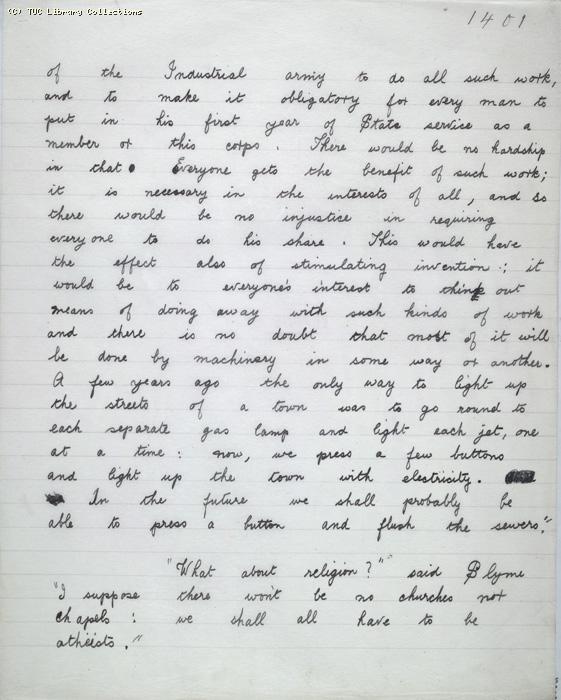 (C) TUC Library Collections
1401
of the Industrial army to do all such work,
and to make it obligatory for every man to
put in his first year of State service as a
member of this corps. There would be no hardship
in that. Everyone gets the benefit of such work;
it is necessary in the interests of all, and so
there would be no injustice in requiring
everyone to do his share. This would have
the effect also of stimulating invention: it
would be to everyone's interest to think out
means of doing away with such kinds of work
and there is no doubt that most of it will
be done by machinery in some way or another.
A few years ago the only way to light up
the streets of a town was to go round to
each separate gas lamp and light each jet, one
at a time: now, we press a few buttons
and light up the town with electricity.
In the future we shall probably be
able to press a button and flush the sewers."
"What about religion?" said Slyme
"I suppose there won't be no churches nor
chapels: we shall all have to be
atheists."